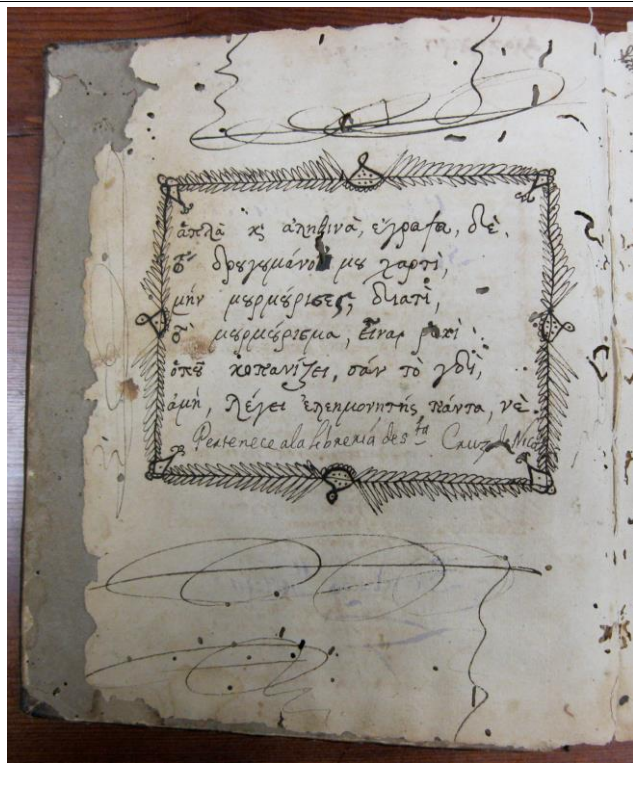 ἁπλὰ κ̀ ἀληθινὰ, ἔγραψα, διὲ.
δρȣγȣμάνο μȣ χαρτὶ,
μὴν μȣρμȣρίσες, διατὶ,
μȣρμȣρισμα, εἶναι
ὁπȣ̃ κοπανίζει, σὰν τὸ γδὶ,
ἀμὴ, λέγει ἐλεημονητὴς πάντα, νὲ.
Pertenece a la libreria de s.ta Cruz de Nico